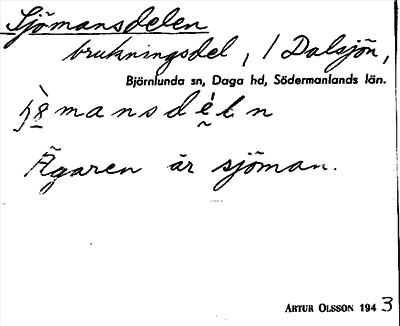 Sjömansdelen
brukningsdel, i Dalsjön,
Björnlunda sn, Daga hd, Södermanlands län.
Ägaren är sjöman.
ARTUR OLSSON 1943